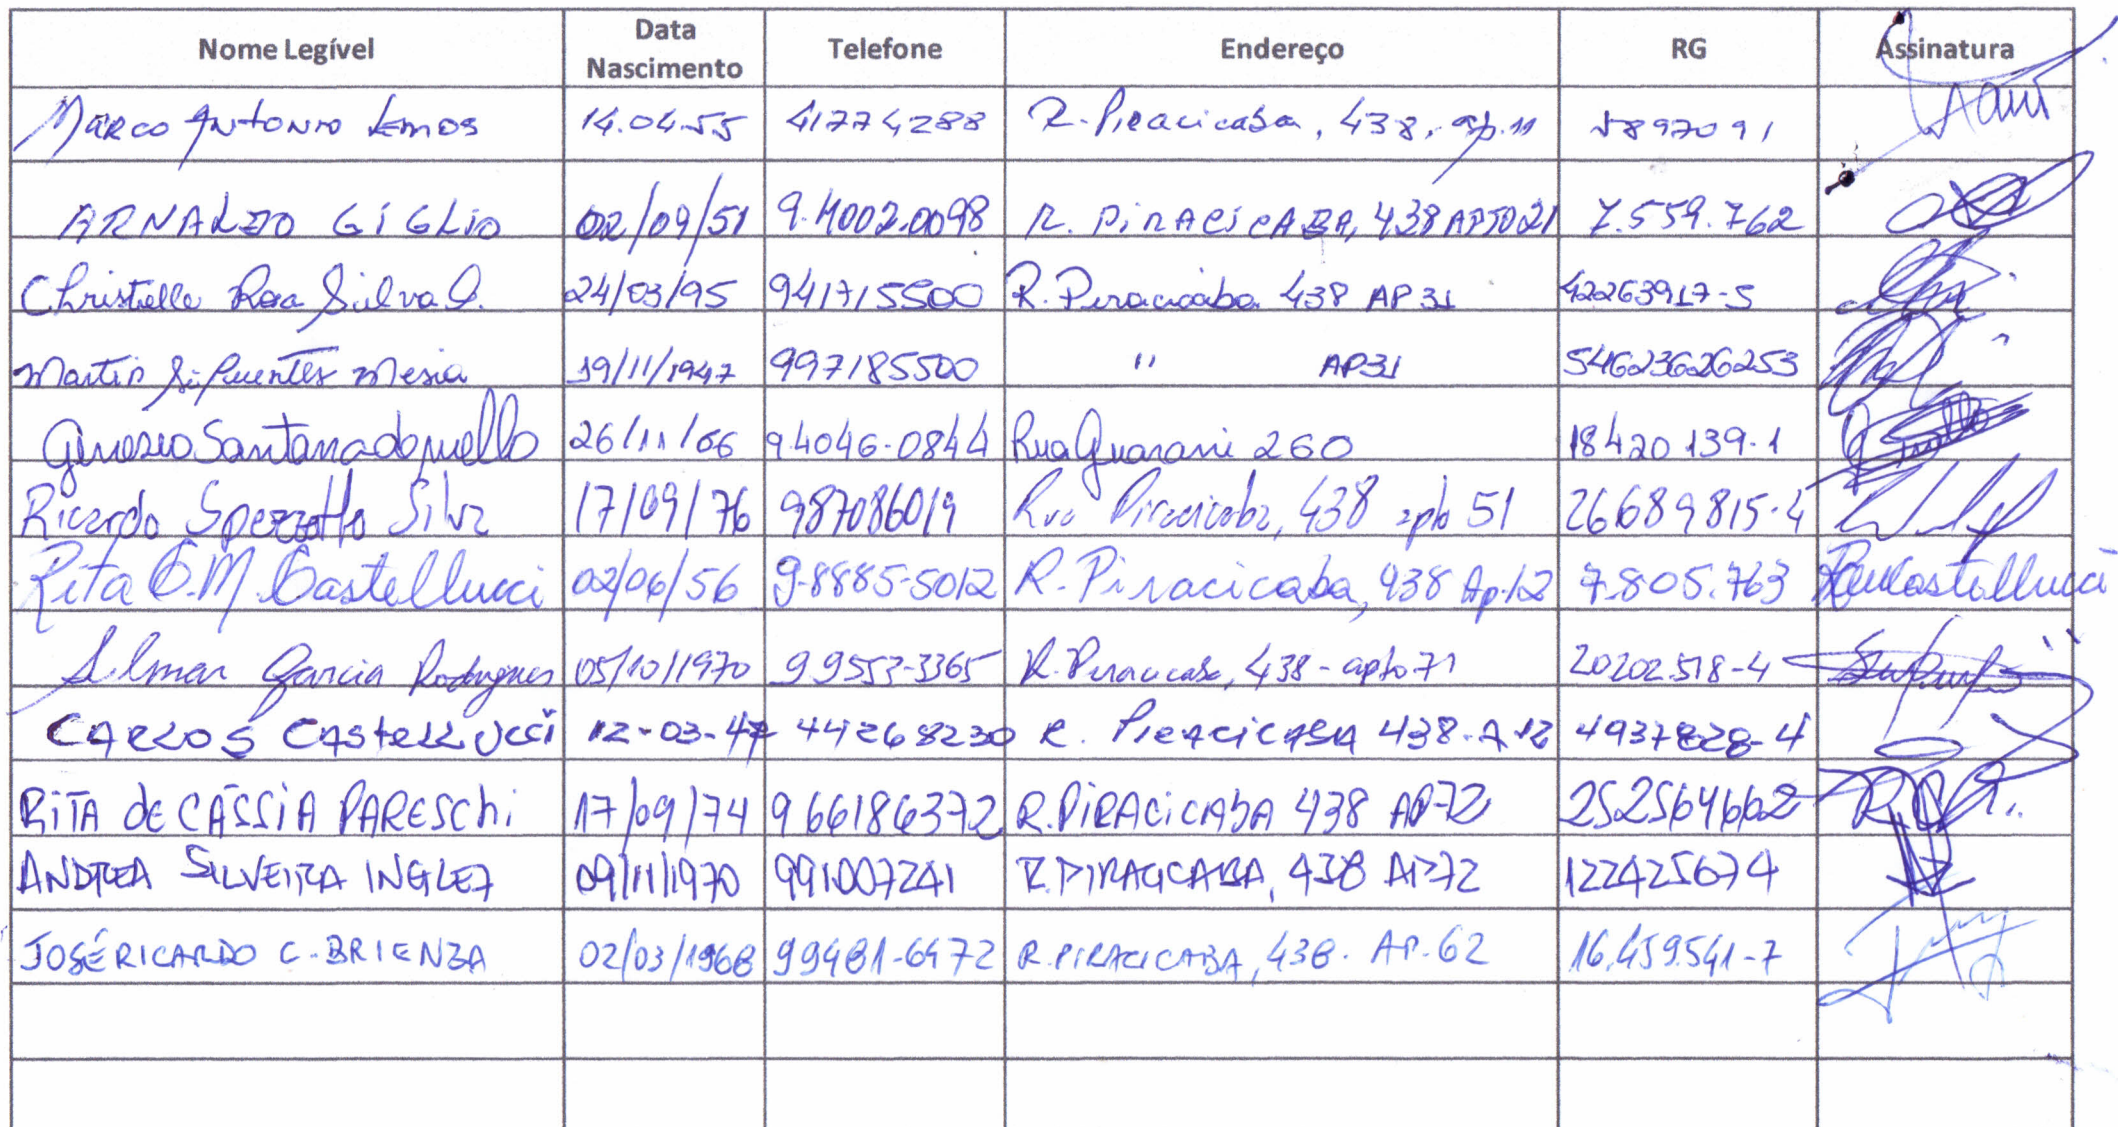 Nome Legível Data Nascimento Telefone Endereço RG Assinatura
Marco Antonio Lemos 14.04.55 41774288 R. Piracicaba, 438, ap. 11 5897091
ARNALDO GIGLIO 02/09/51 9.4002.0098 R. PIRACICABA, 438 APTO 21 7.559.762
Christelle Rosa Silva S. 24/03/95 941715500 R. Piracicaba 438 AP 31 42263917-5
Martin Sifuentes Mesia 19/11/1947 997185500 " AP31 54623626253
Santana de mello 26/11/66 94046-0844 Rua Guarani 260 18420 139-1
Ricardo Spezzotto Silva 17/09/76 987086019 Rua Piracicaba, 438 apto 51 26689815-4
Rita C.M. Castellucci 02/06/56 9-8885-5012 R. Piracicaba, 438 Ap.12 7.805.763 Castellucci
Silmar Garcia Rodrigues 05/10/1970 99553-3365 R. Piracicaba, 438 - apto 71 20202518-4
CARLOS CASTELLUCCI 12-03-47 44268230 R. PIRACICABA 438-A 12 4937828-4
RITA de CÁSSIA PARESCHI 17/09/74 966186372 R. PIRACICABA 438 AP72 252564662
ANDREA SILVEIRA INGLEZ 09/11/1970 991007241 R. PIRACICABA, 438 AP72 122425674
JOSÉ RICARDO C. BRIENZA 02/03/1968 99481-6472 R. PIRACICABA, 438. AP. 62 16.459.541-7